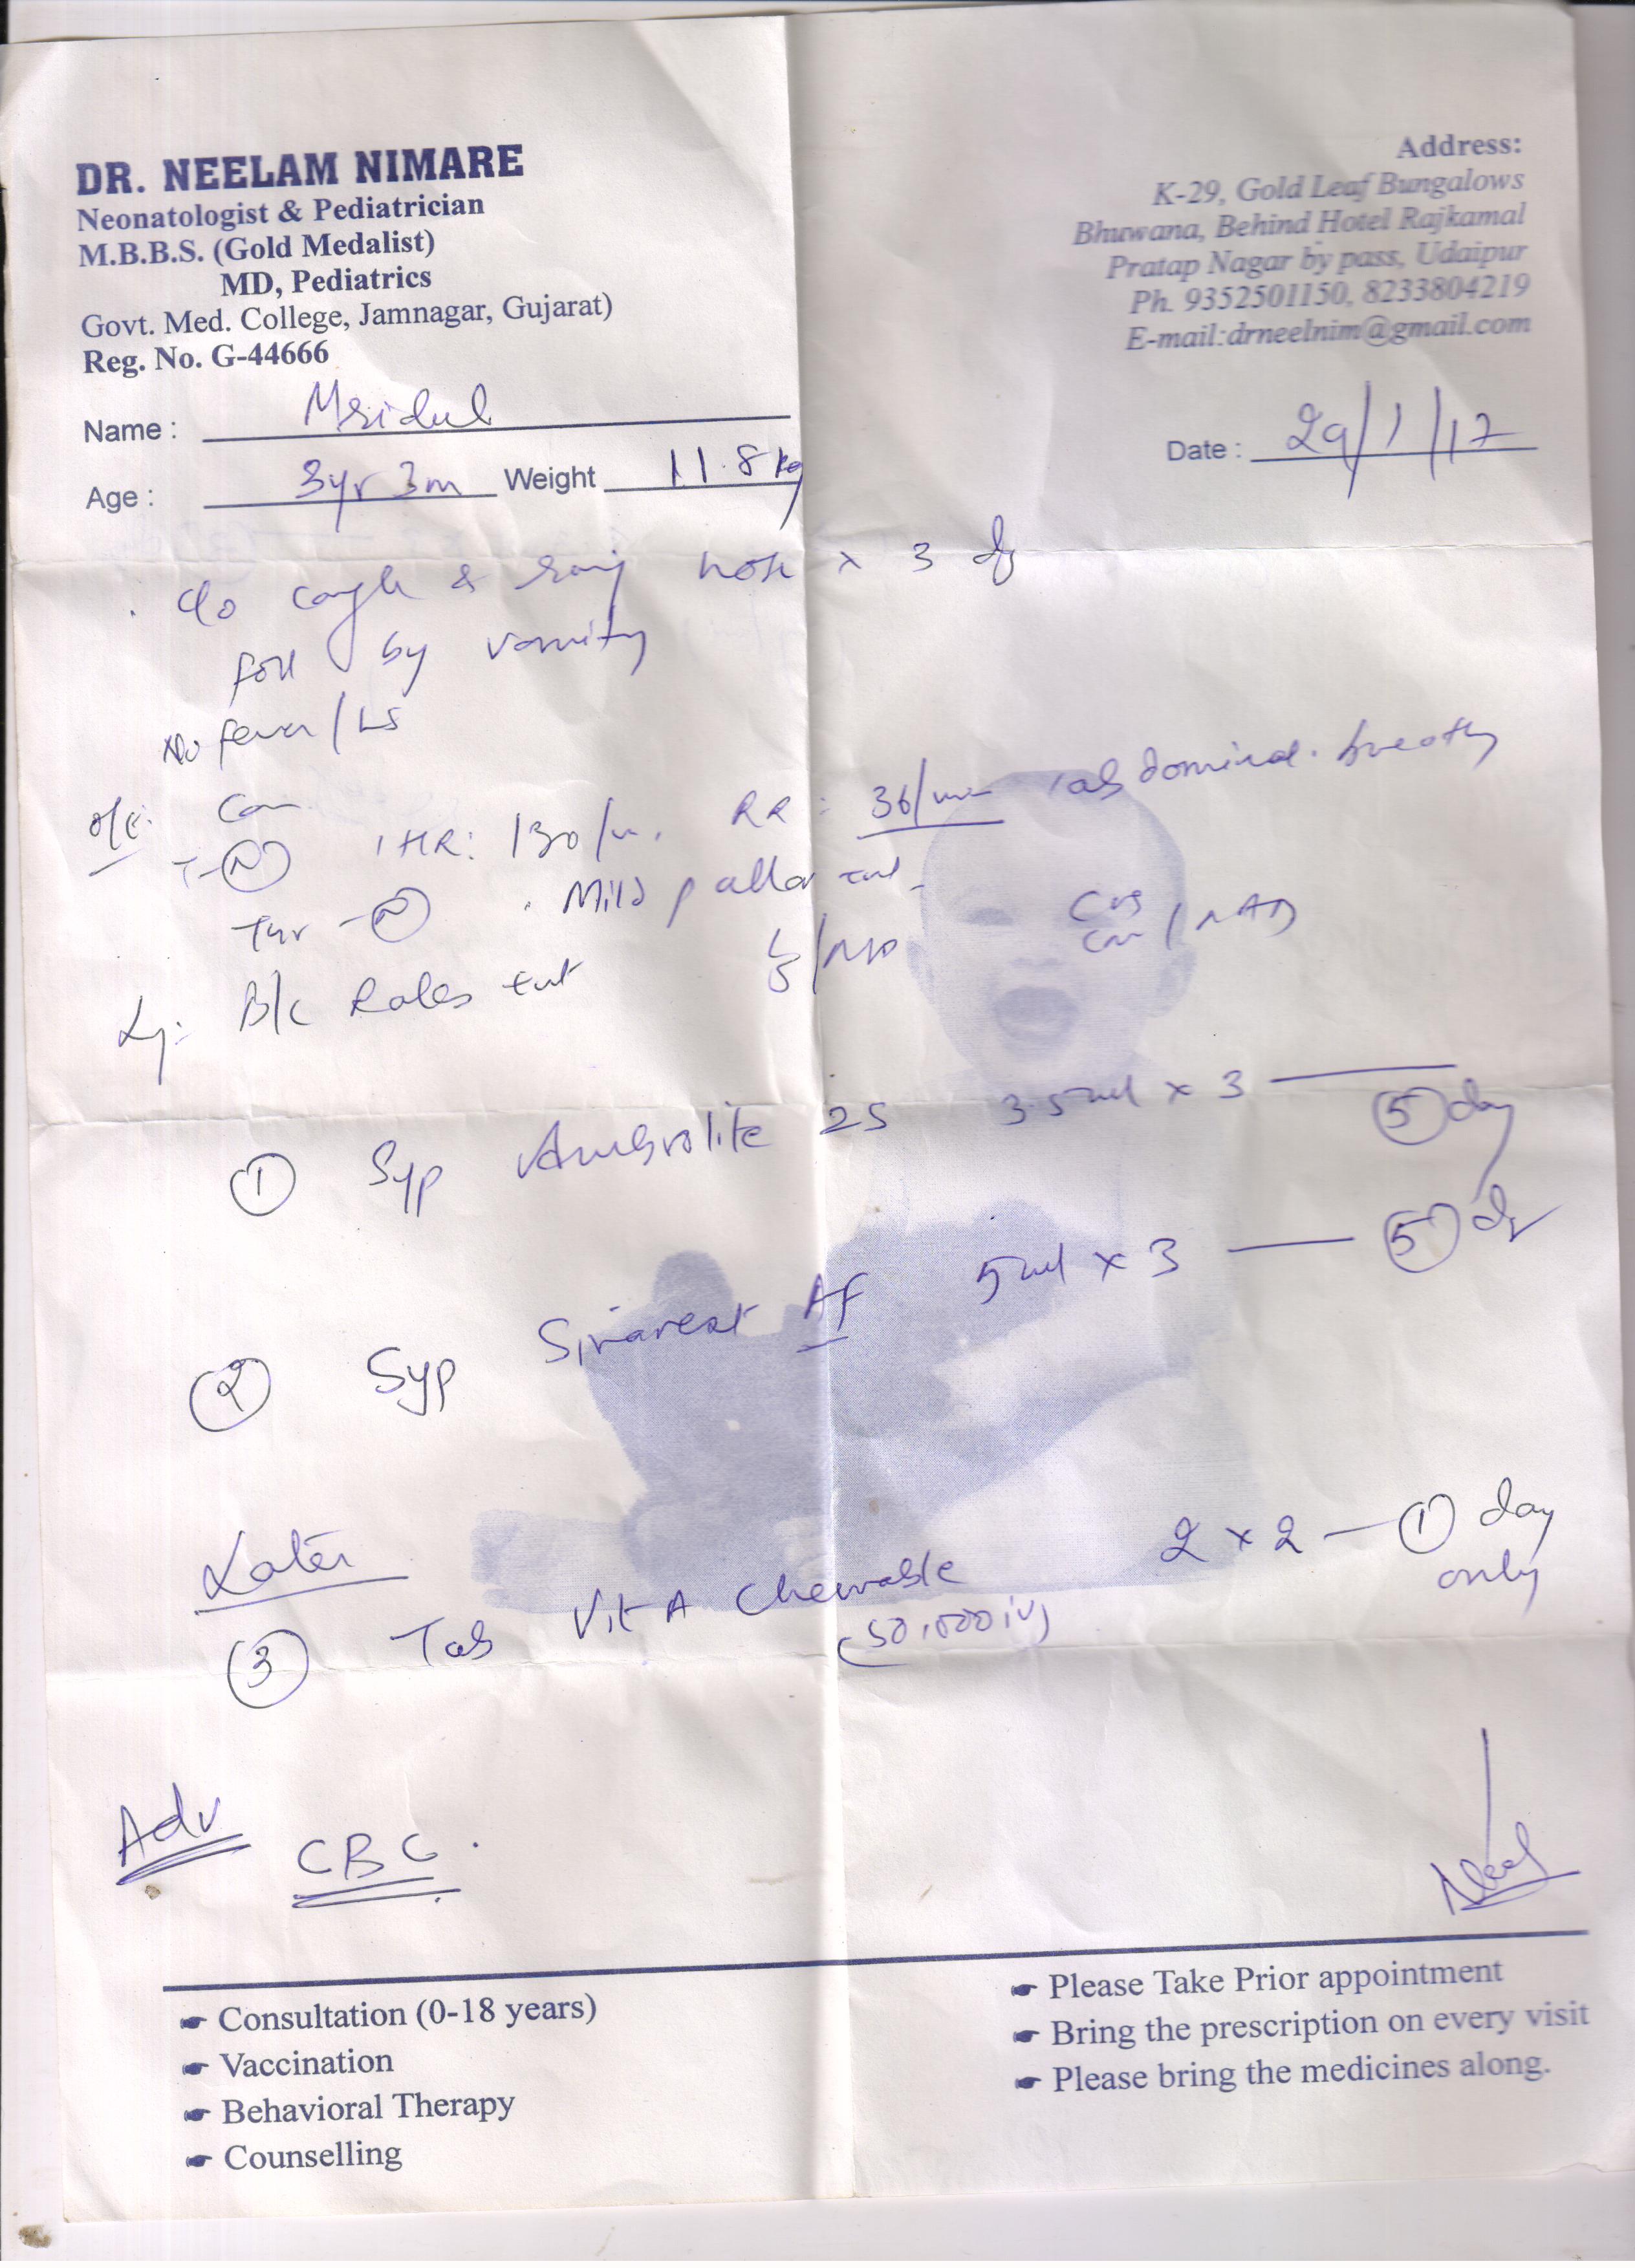 DR. NEELAM NIMARE
Neonatologist & Pediatrician
M.B.B.S. (Gold Medalist)
MD, Pediatrics
Govt. Med. College, Jamnagar, Gujarat)
Reg. No. G-44666
Address:
K-29, Gold Leaf Bungalows
Bhuwana, Behind Hotel Rajkamal
Pratap Nagar by pass, Udaipur
Ph. 9352501150, 8233804219
E-mail:drneelnim@gmail.com
Name : Mridul
Age : 3yr 3m Weight 11.8 kg
Date : 29/1/17
c/o cough & nose x 3 dy
foll by vomity
No fever/LS
o/e:
T-N HR: 130/m. RR: 36/min abdominal breathy
N Mild pallor
B/L Rales
CVS
CNS / NAD
① Syp Ambrolite 2S 3.5ml x 3 — ⑤ day
② Syp Sinarest AF 5ml x 3 — ⑤ dy
Later
③ Tab Vit A Chewable 2 x 2 — ① day
(50,000 iu) only
Adv
CBC.
Consultation (0-18 years)
Vaccination
Behavioral Therapy
Counselling
Please Take Prior appointment
Bring the prescription on every visit
Please bring the medicines along.